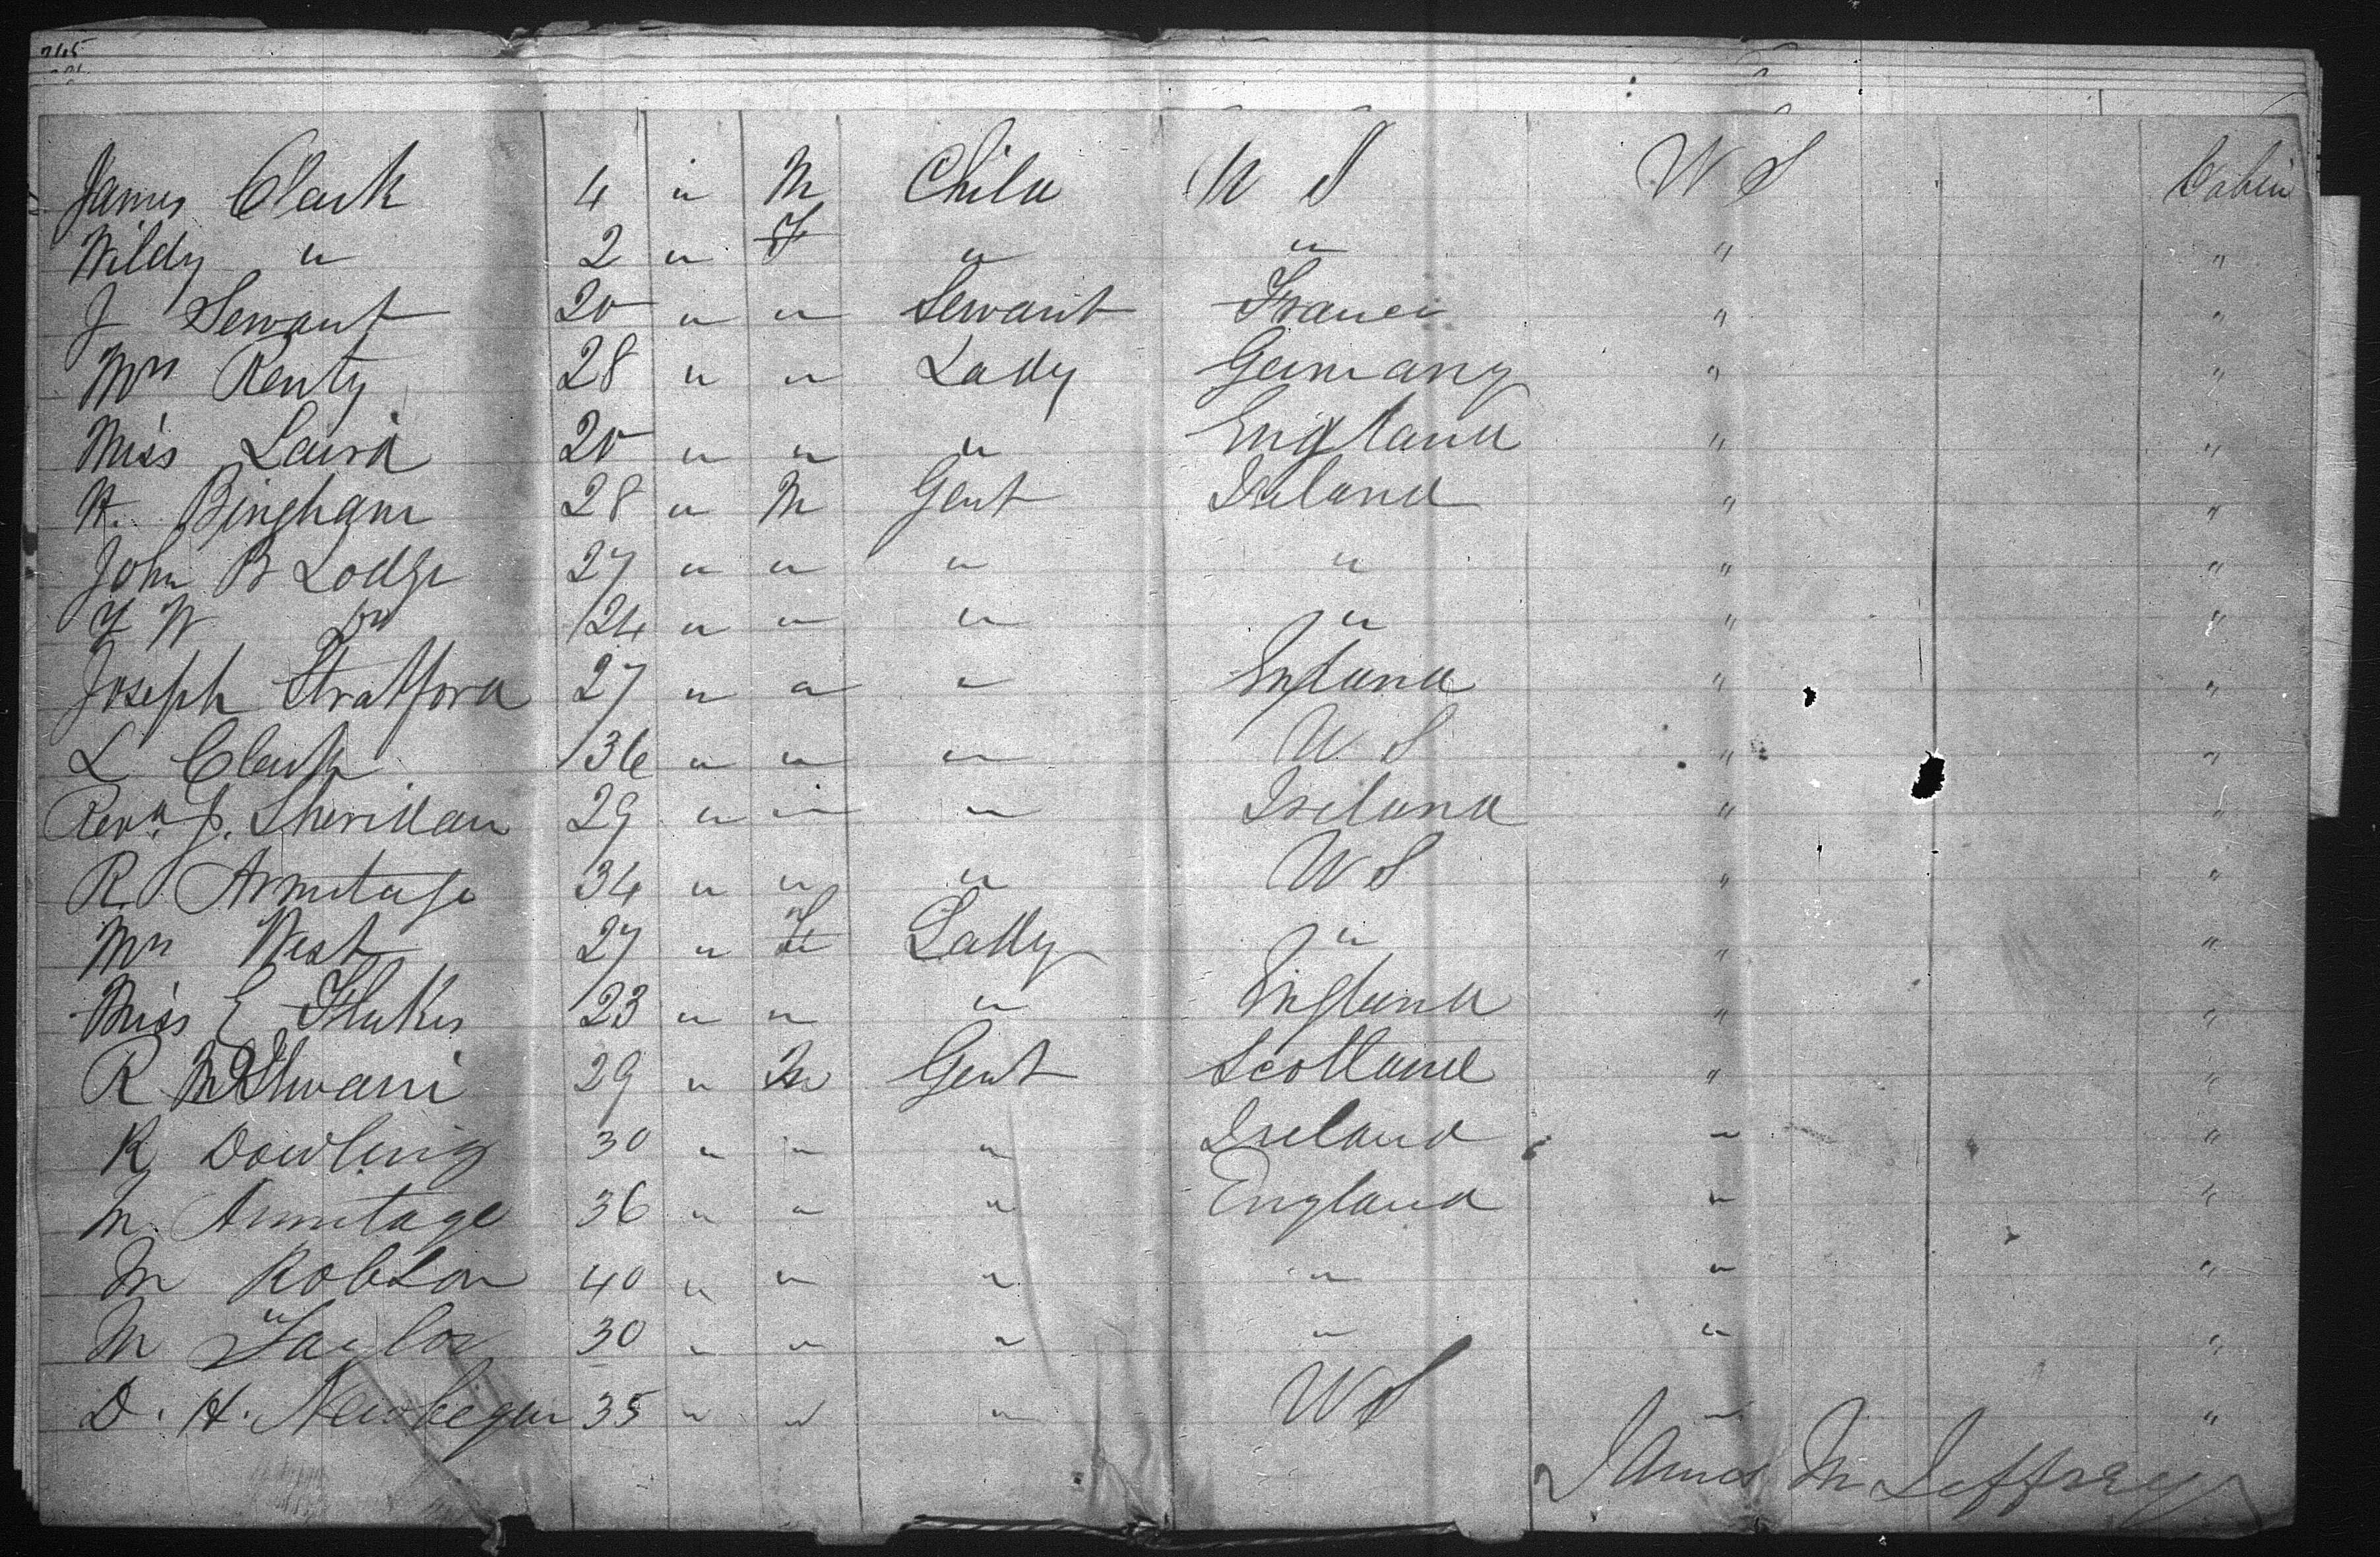 James Clark 4 " M Child U S U S Cabin
Wildy " 2 " F " " " "
J Servant 20 " " Servant France " "
Mrs Renty 28 " " Lady Germany " "
Miss Laird 20 " " " England " "
H. Bingham 28 " M Gent Ireland " "
John B Lodge 27 " " " " " "
W " 24 " " " " " "
Joseph Stratford 27 " " " England " "
L Clark 36 " " " U S " "
Revd J. Sheridan 29 " " " Ireland " "
R. Armitage 34 " " " U S " "
Mrs West 27 " F Lady " " "
Miss E 23 " " " England " "
R 29 " M Gent Scotland " "
R Dowling 30 " " " Ireland " "
M. Armitage 36 " " " England " "
M Robson 40 " " " " " "
M Taylor 30 " " " " " "
D. H. Newbegin 35 " " " U S " "
James M Jeffrey